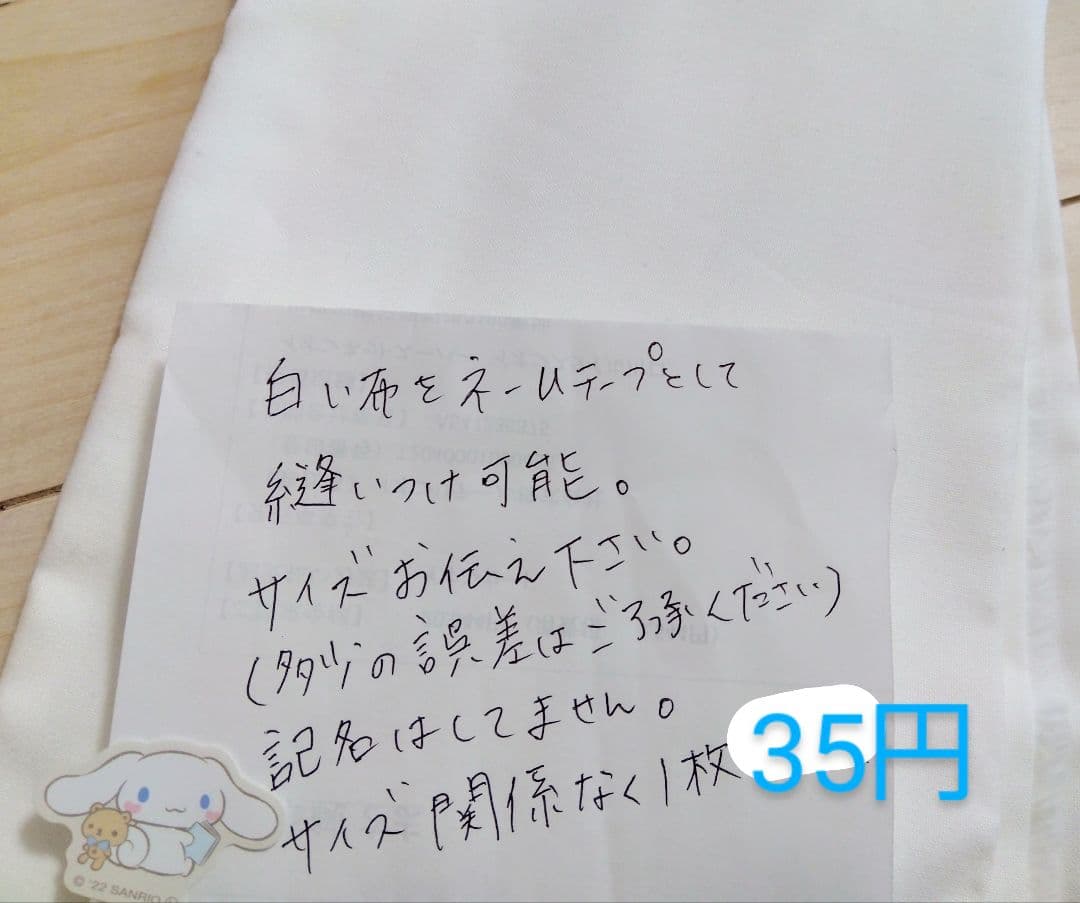 白い布をネームテープとして
縫いつけ可能。
サイズお伝え下さい。
(多少の誤差はご了承ください)
記名はしてません。
サイズ関係なく1枚35円
© '22 SANRIO